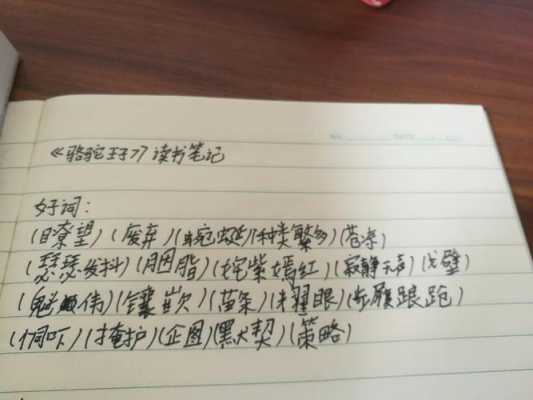 《骆驼王子》读书笔记
好词：
(瞭望)(废弃)(蜿蜒)(种类繁多)(苍凉)
(瑟瑟发抖)(胭脂)(姹紫嫣红)(寂静无声)(戈壁)
(魁伟)(镶嵌)(苗条)(耀眼)(步履踉跄)
(恫吓)(掩护)(企图)(默契)(策略)